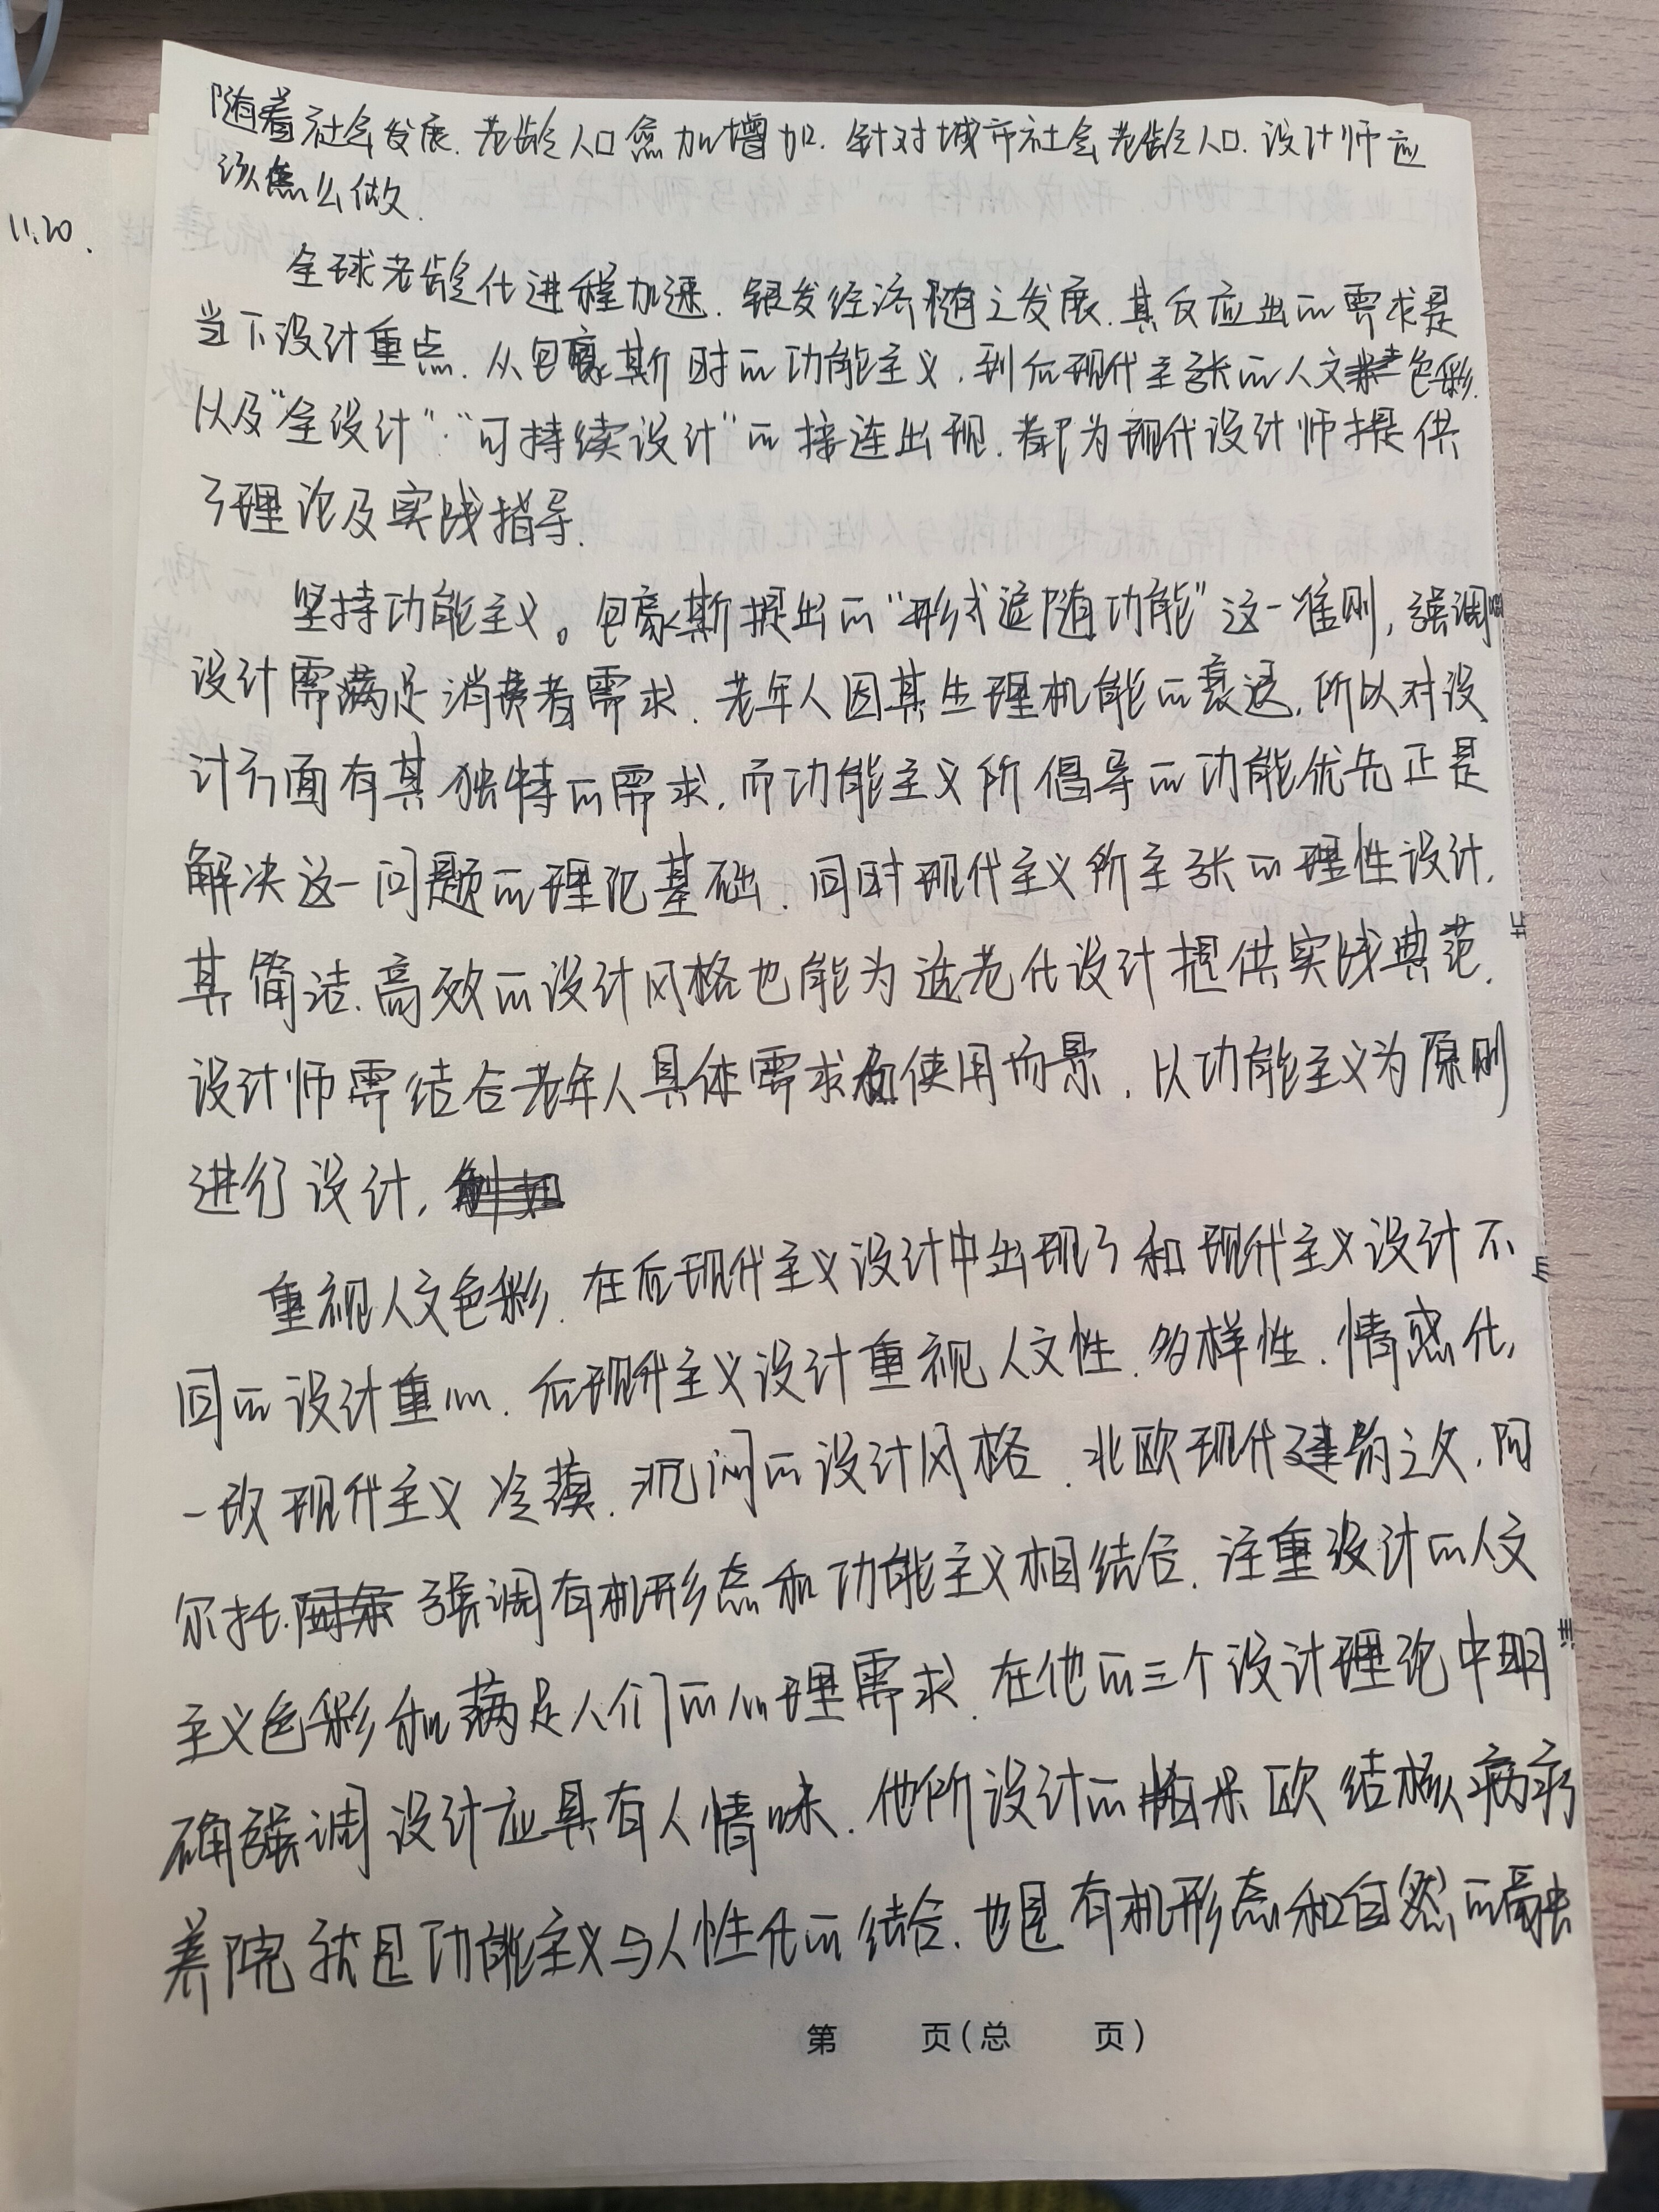 随着社会发展.老龄人口愈加增加.针对城市社会老龄人口.设计师应
该怎么做.
11.20.
全球老龄化进程加速.银发经济随之发展.其反应出的需求是
当下设计重点.从包豪斯时的功能主义.到后现代主张的人文色彩.
以及"全设计"."可持续设计"的接连出现.都为现代设计师提供
了理论及实践指导.
坚持功能主义。包豪斯提出的"形式追随功能"这一准则,强调
设计需满足消费者需求.老年人因其生理机能的衰退.所以对设
计方面有其独特的需求.而功能主义所倡导的功能优先正是
解决这一问题的理论基础.同时现代主义所主张的理性设计.
其简洁.高效的设计风格也能为适老化设计提供实践典范.
设计师需结合老年人具体需求及使用场景.以功能主义为原则
进行设计.
重视人文色彩.在后现代主义设计中出现了和现代主义设计不
同的设计重心.后现代主义设计重视人文性.多样性.情感化,
一改现代主义冷漠.沉闷的设计风格.北欧现代建筑之父.阿
尔托.强调有机形态和功能主义相结合.注重设计的人文
主义色彩和满足人们的心理需求.在他的三个设计理论中明
确强调设计应具有人情味.他所设计的帕米欧结核病疗
养院就是功能主义与人性化的结合.也是有机形态和自然的融
第 页(总 页)